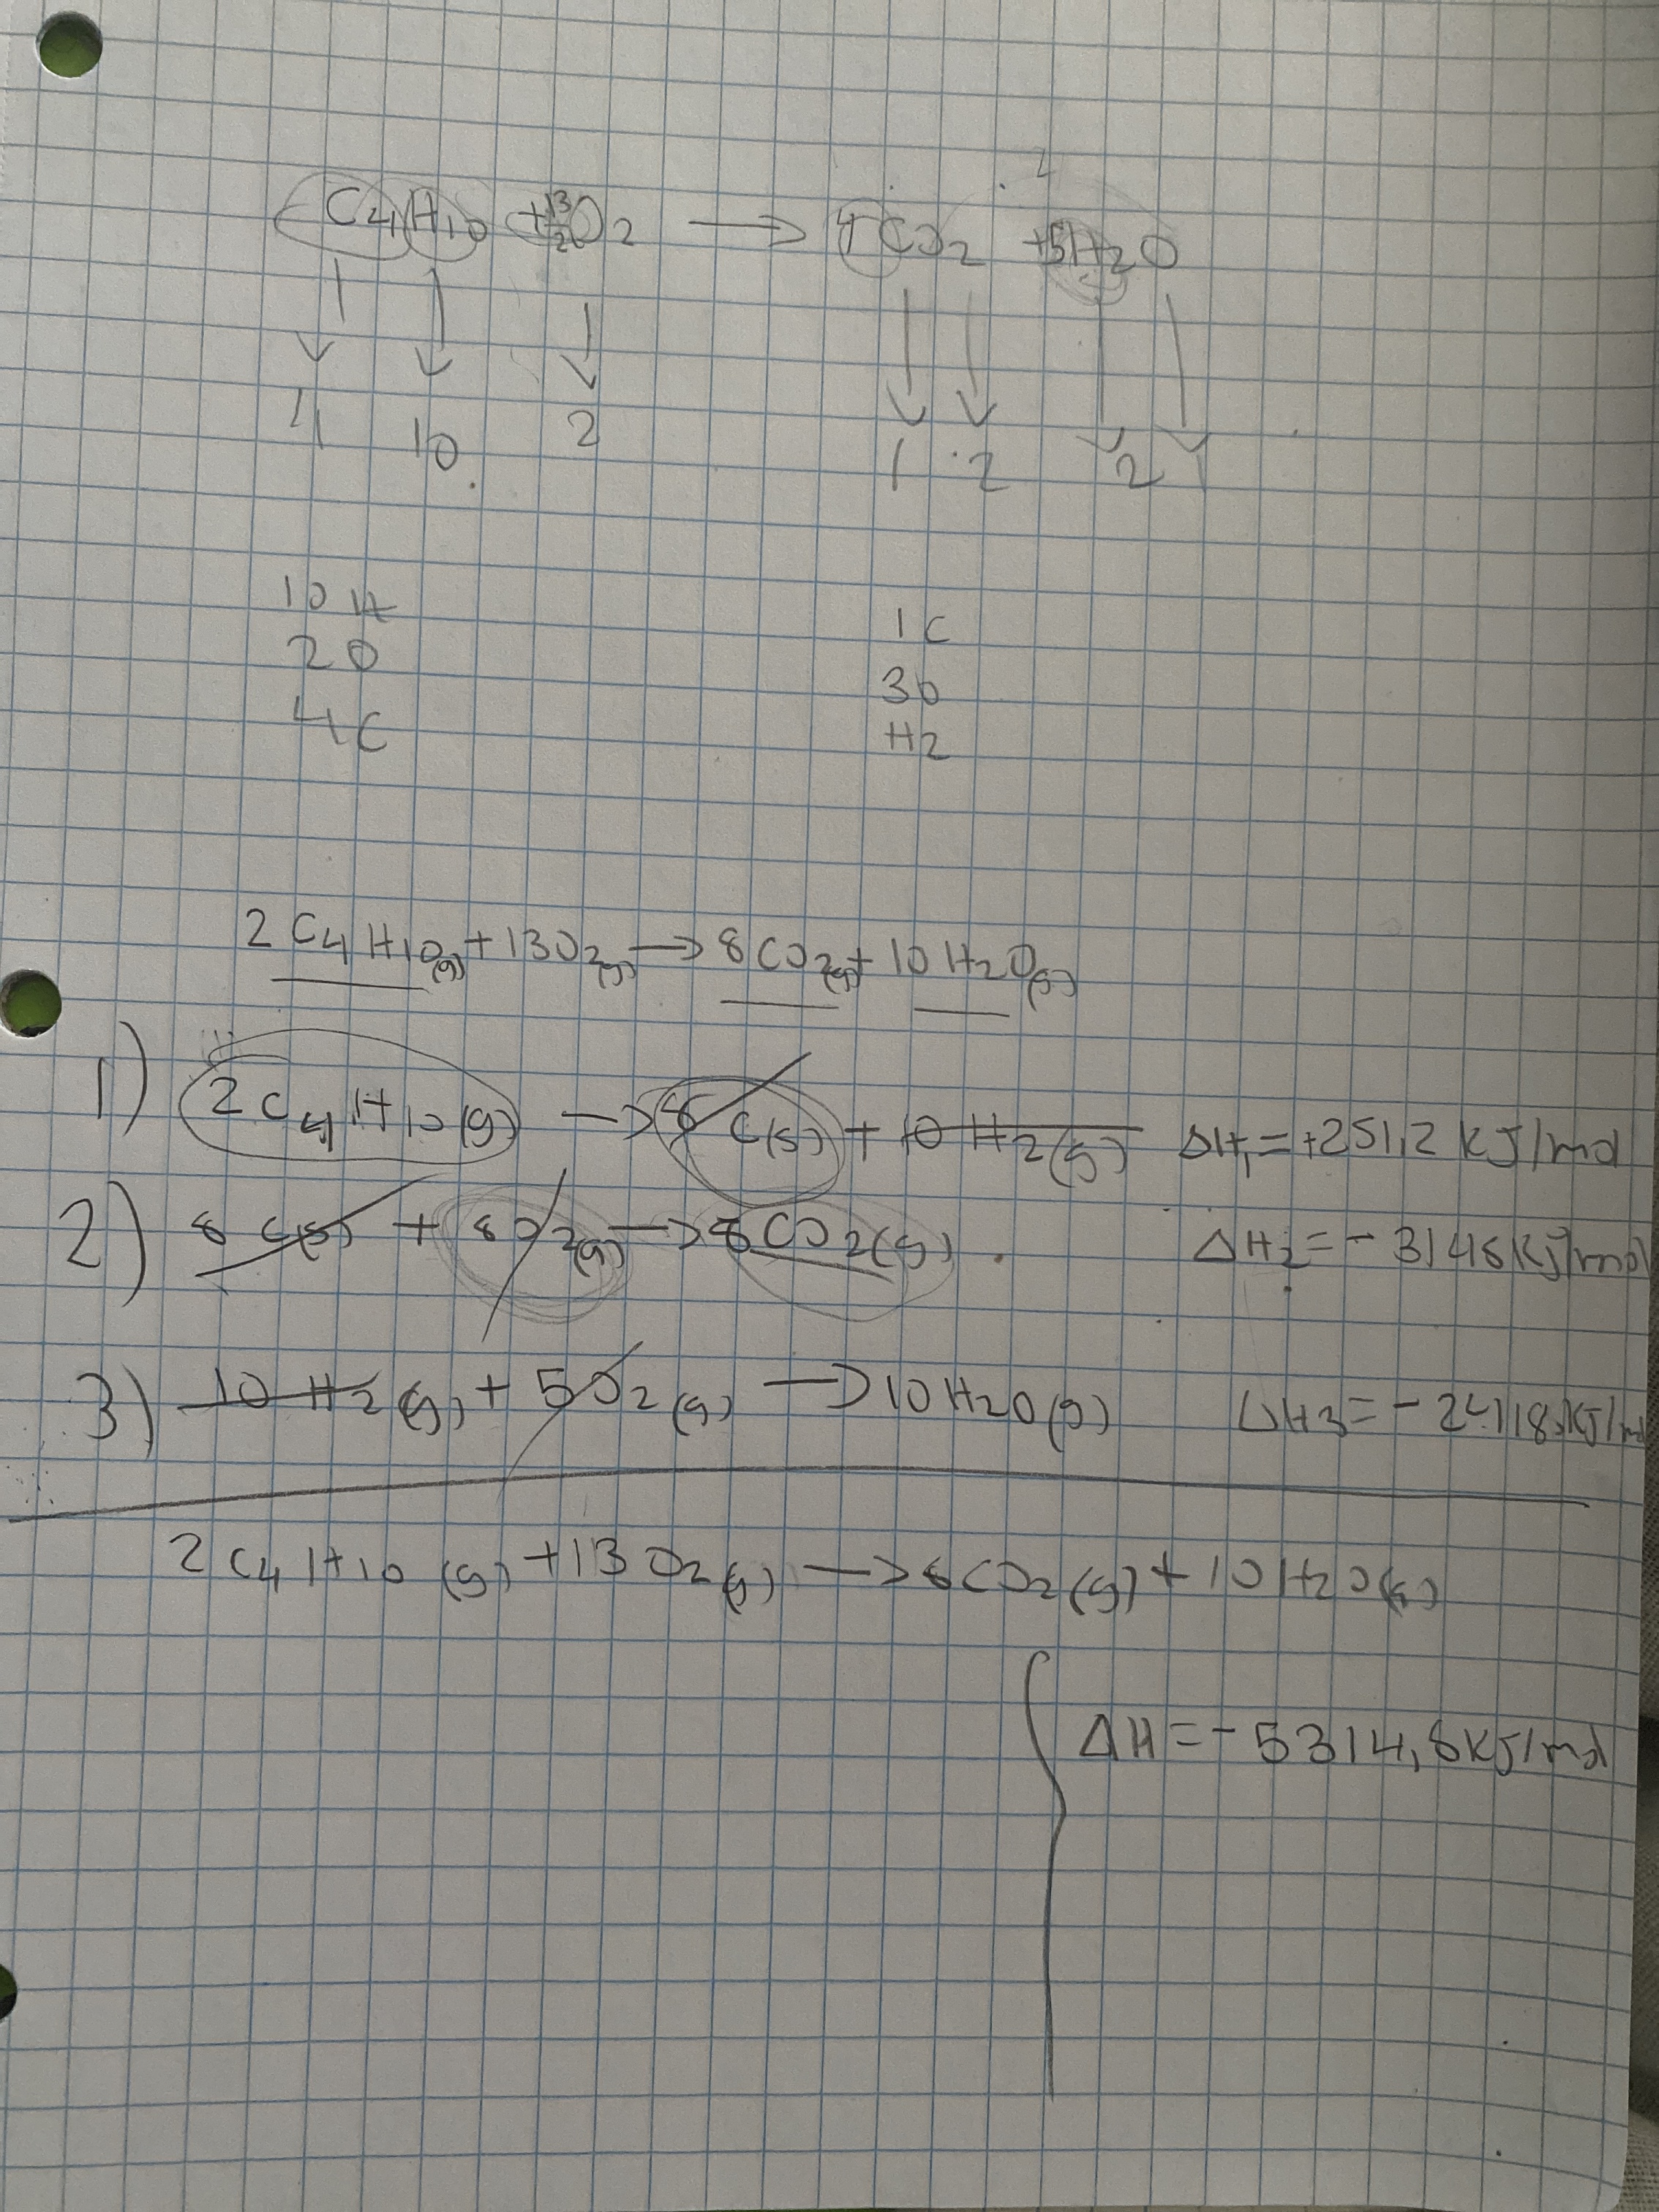 C4H10 + 13/2 O2 → 4CO2 + 5H2O
4 10 2 1 2 2 1
10 H 1 C
2 O 3 O
4 C H2
2 C4H10(g) + 13O2(g) → 8CO2(g) + 10H2O(g)
1) 2C4H10(g) → 8 C(s) + 10 H2(g) ΔH1 = +251,2 kJ/mol
2) 8 C(s) + 8O2(g) → 8CO2(g) ΔH2 = - 3148 kJ/mol
3) 10 H2(g) + 5O2(g) → 10H2O(g) ΔH3 = - 2418 kJ/mol
2 C4H10(g) + 13 O2(g) → 8CO2(g) + 10H2O(g)
ΔH = - 5314,8 kJ/mol